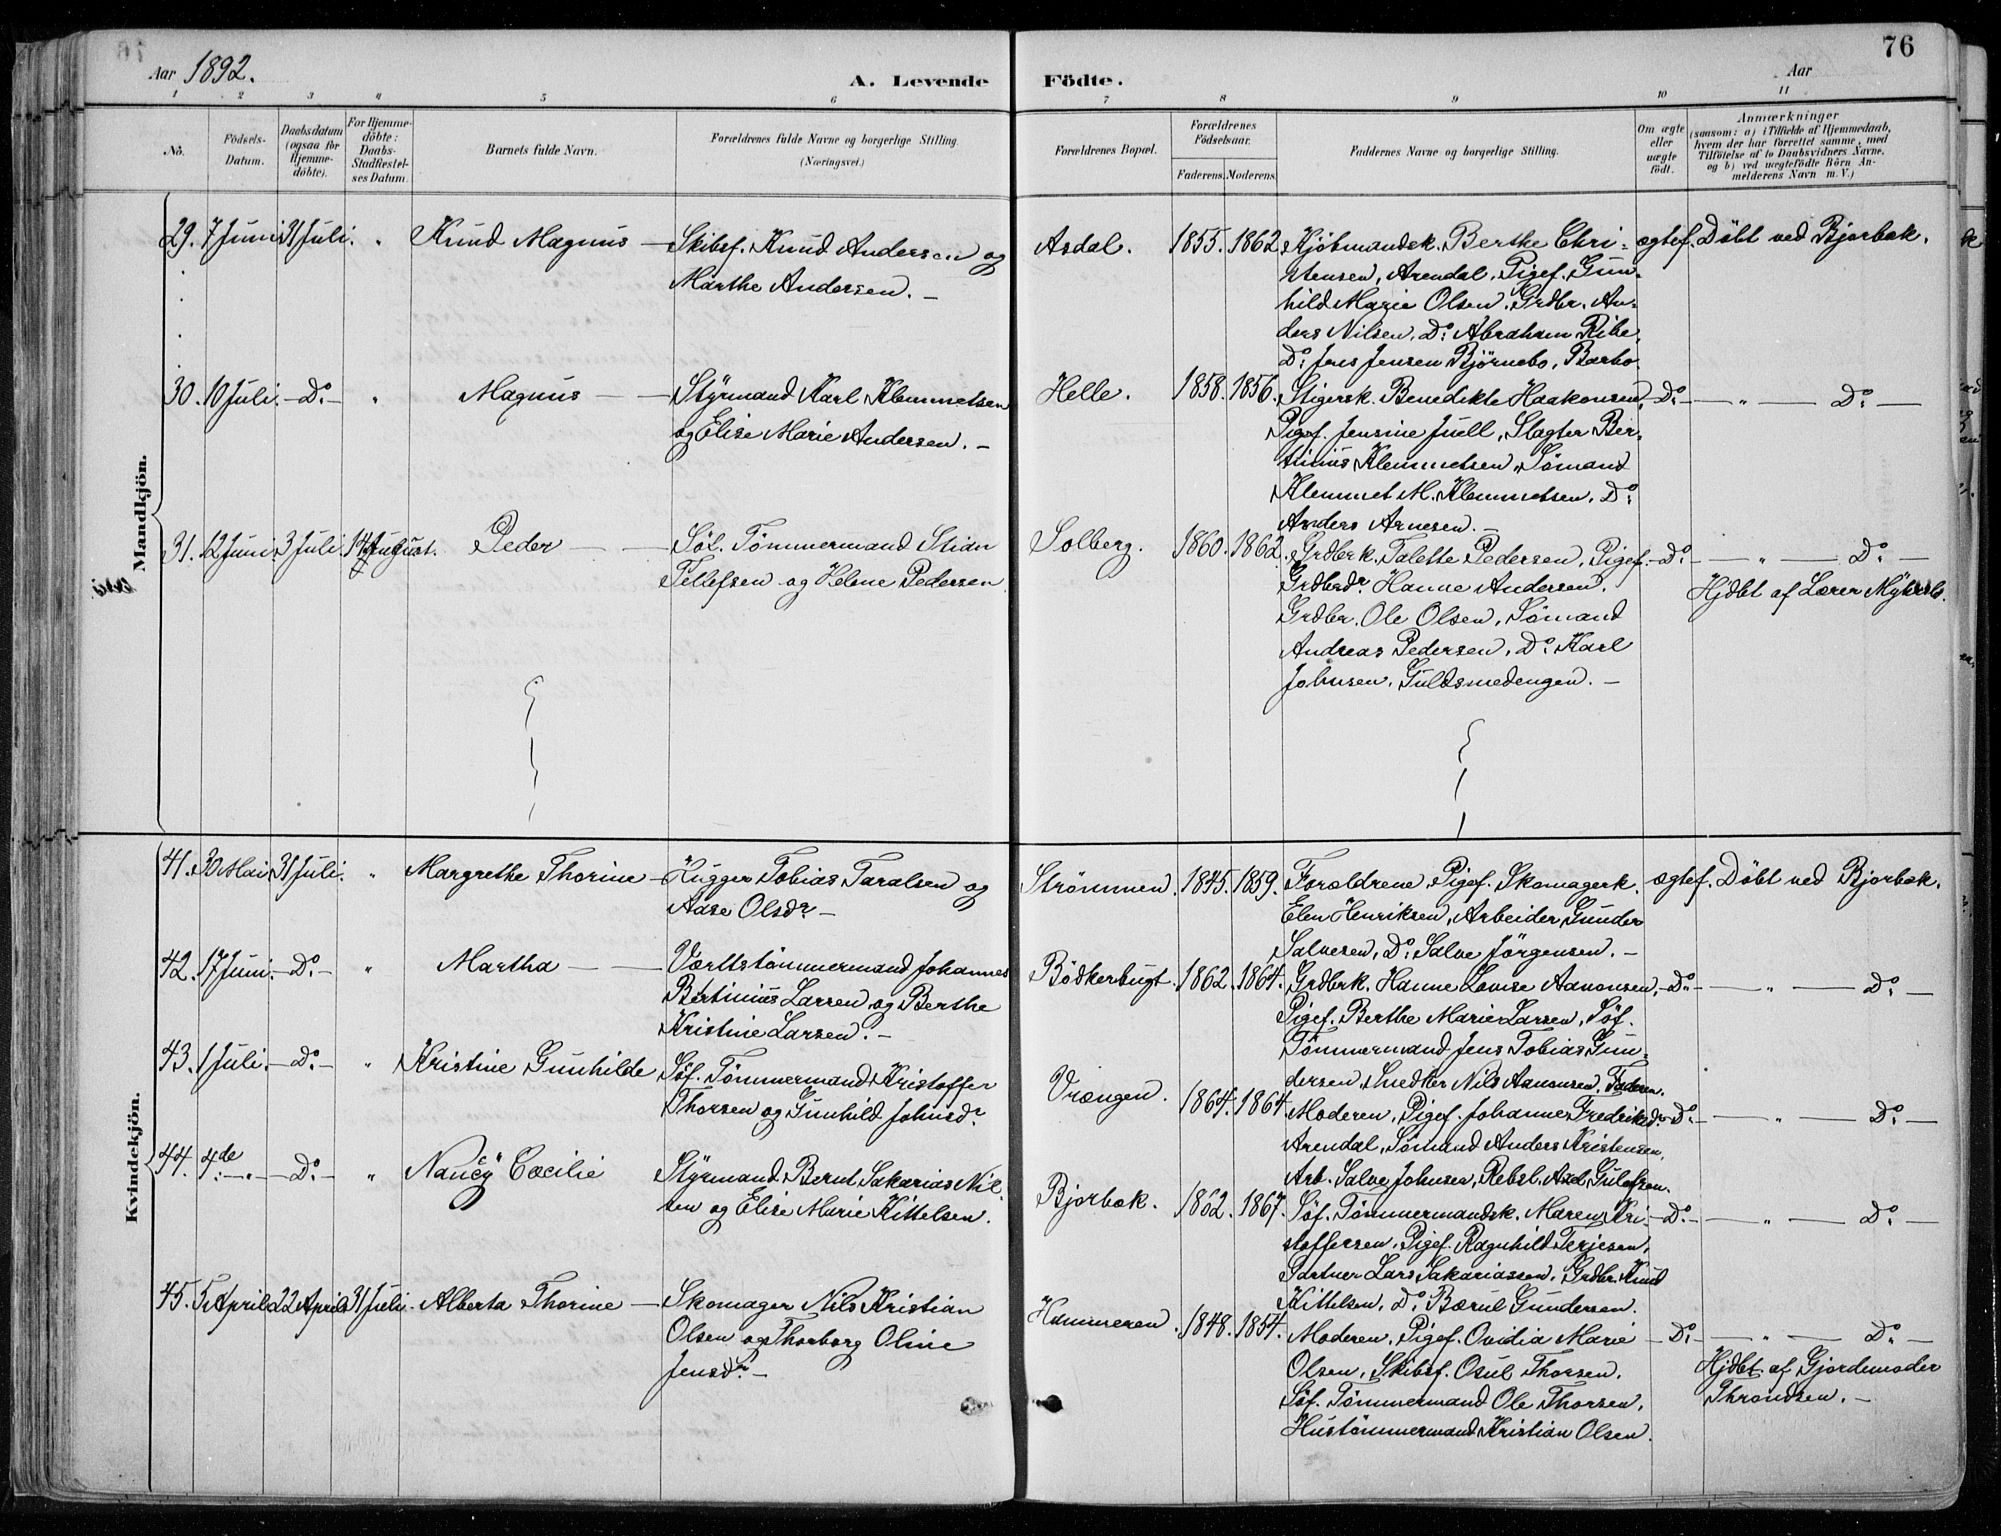 76
Aar 1892.
A. Levende Födte.
Aar
1 2 3 4 5 6 7 8 9 10 11
No.
Födsels-Datum.
Daabsdatum (ogsaa for Hjemme-döbte).
For Hjemme-döbte: Daabs-Stadfæstel-ses Datum.
Barnets fulde Navn.
Forældrenes fulde Navne og borgerlige Stilling. (Næringsvei.)
Forældrenes Bopæl.
Forældrenes Födselsaar.
Faderens. Moderens.
Faddernes Navne og borgerlige Stilling.
Om ægte eller uægte födt.
Anmærkninger
(saasom: a) i Tilfælde af Hjemmedaab,
hvem der har forrettet samme, med
Tilföielse af to Daabsvidners Navne,
og b) ved uægtefödte Börn An-
melderens Navn m. V.)
Mandkjön.
29. 7 Juni 31 Juli. " Knud Magnus — Skibsf. Knud Andersen og
Marthe Andersen. —
Asdal. 1855. 1862. Kjöbmandsk. Berthe Chri-
stensen, Arendal, Pigef. Gun-
hild Marie Olsen, Grdbr. An-
ders Nilsen, Do: Abraham Ribe
Do: Jens Jensen Björnebo, Barbo
ægtef. Döbt ved Bjorbæk.
30. 10 Juli. — Do: — " Magnus — — Styrmand Karl Klemmetsen
og Elise Marie Andersen. —
Helle. 1858. 1856. Stigersk. Benedikte Haakonsen,
Pigef. Jensine Juell, Slagter Ber-
tinius Klemmetsen, Sömand
Klemmet M. Klemmetsen, Do:
Anders Arnesen. —
— Do: — — " — Do: —
31. 12 Juni. 3 Juli. 14 August. Peder — — Söf. Tömmermand Stian
Tellefsen og Helene Pedersen
Solberg. 1860. 1862. Grdbrk. Talette Pedersen, Pigef.
Grdbrdr. Hanne Andersen,
Grdbr. Ole Olsen, Sömand
Andreas Pedersen, Do: Karl
Johnsen, Guldsmedengen. —
— Do: — — " — Do: —
Hjdbt af Lærer
Kvindekjön.
41. 30 Mai 31 Juli. " Margrethe Thorine — Hugger Tobias Taralsen og
Aase Olsdr. —
Strömmen. 1845. 1859. Forældrene, Pigef. Skomagerk.
Elen Henriksen, Arbeider Gunder
Salvesen, Do: Salve Jörgensen. —
ægtef. Döbt ved Bjorbæk.
42. 17 Juni. — Do: — " Martha — — Værftstömmermand Johannes
Bertinius Larsen og Berthe
Kristine Larsen. —
Bödkerbugt. 1862. 1864. Grdbrk. Hanne Lovise Aanonsen,
Pigef. Berthe Marie Larsen, Söf.
Tömmermand Jens Tobias Gun-
dersen, Snedker Nils Aanonsen, Faderen.
— Do: — — " — Do: —
43. 1 Juli. — Do: — " Kristine Gunhilde Söf. Tömmermand Kristoffer
Thorsen og Gunhild Johnsdr.
Vrængen. 1864. 1864 Moderen, Pigef. Johanne Fredriksdr.
Arendal, Sömand Anders Kristensen,
Arb. Salve Johnsen, Rebsl. Axel Gulofsen.
— Do: — — " — Do: —
44. 4de — " — Do: — " Nancy Cæcilie Styrmand Bernt Sakarias Nil-
sen og Elise Marie Kittelsen.
Bjorbæk. 1862. 1867. Söf. Tömmermandsk. Maren Kri-
stoffersen, Pigef. Ragnhild Terjesen,
Gartner Lars Sakariassen, Grdbr. Knud
Kittelsen, Do: Bærul Gundersen.
— Do: — — " — Do: —
45. 5 April 22 April 31 Juli. Alberta Thorine — Skomager Nils Kristian
Olsen og Thorborg Oline
Jensdr. —
Hammeren. 1848. 1854. Moderen, Pigef. Ovidia Marie
Olsen, Skibsf. Osul Thorsen,
Söf. Tömmermand Ole Thorsen,
Hustömmermand Kristian Olsen.
— Do: — — " — Do: —
Hjdbt af Gjordemoder
Throndsen. —